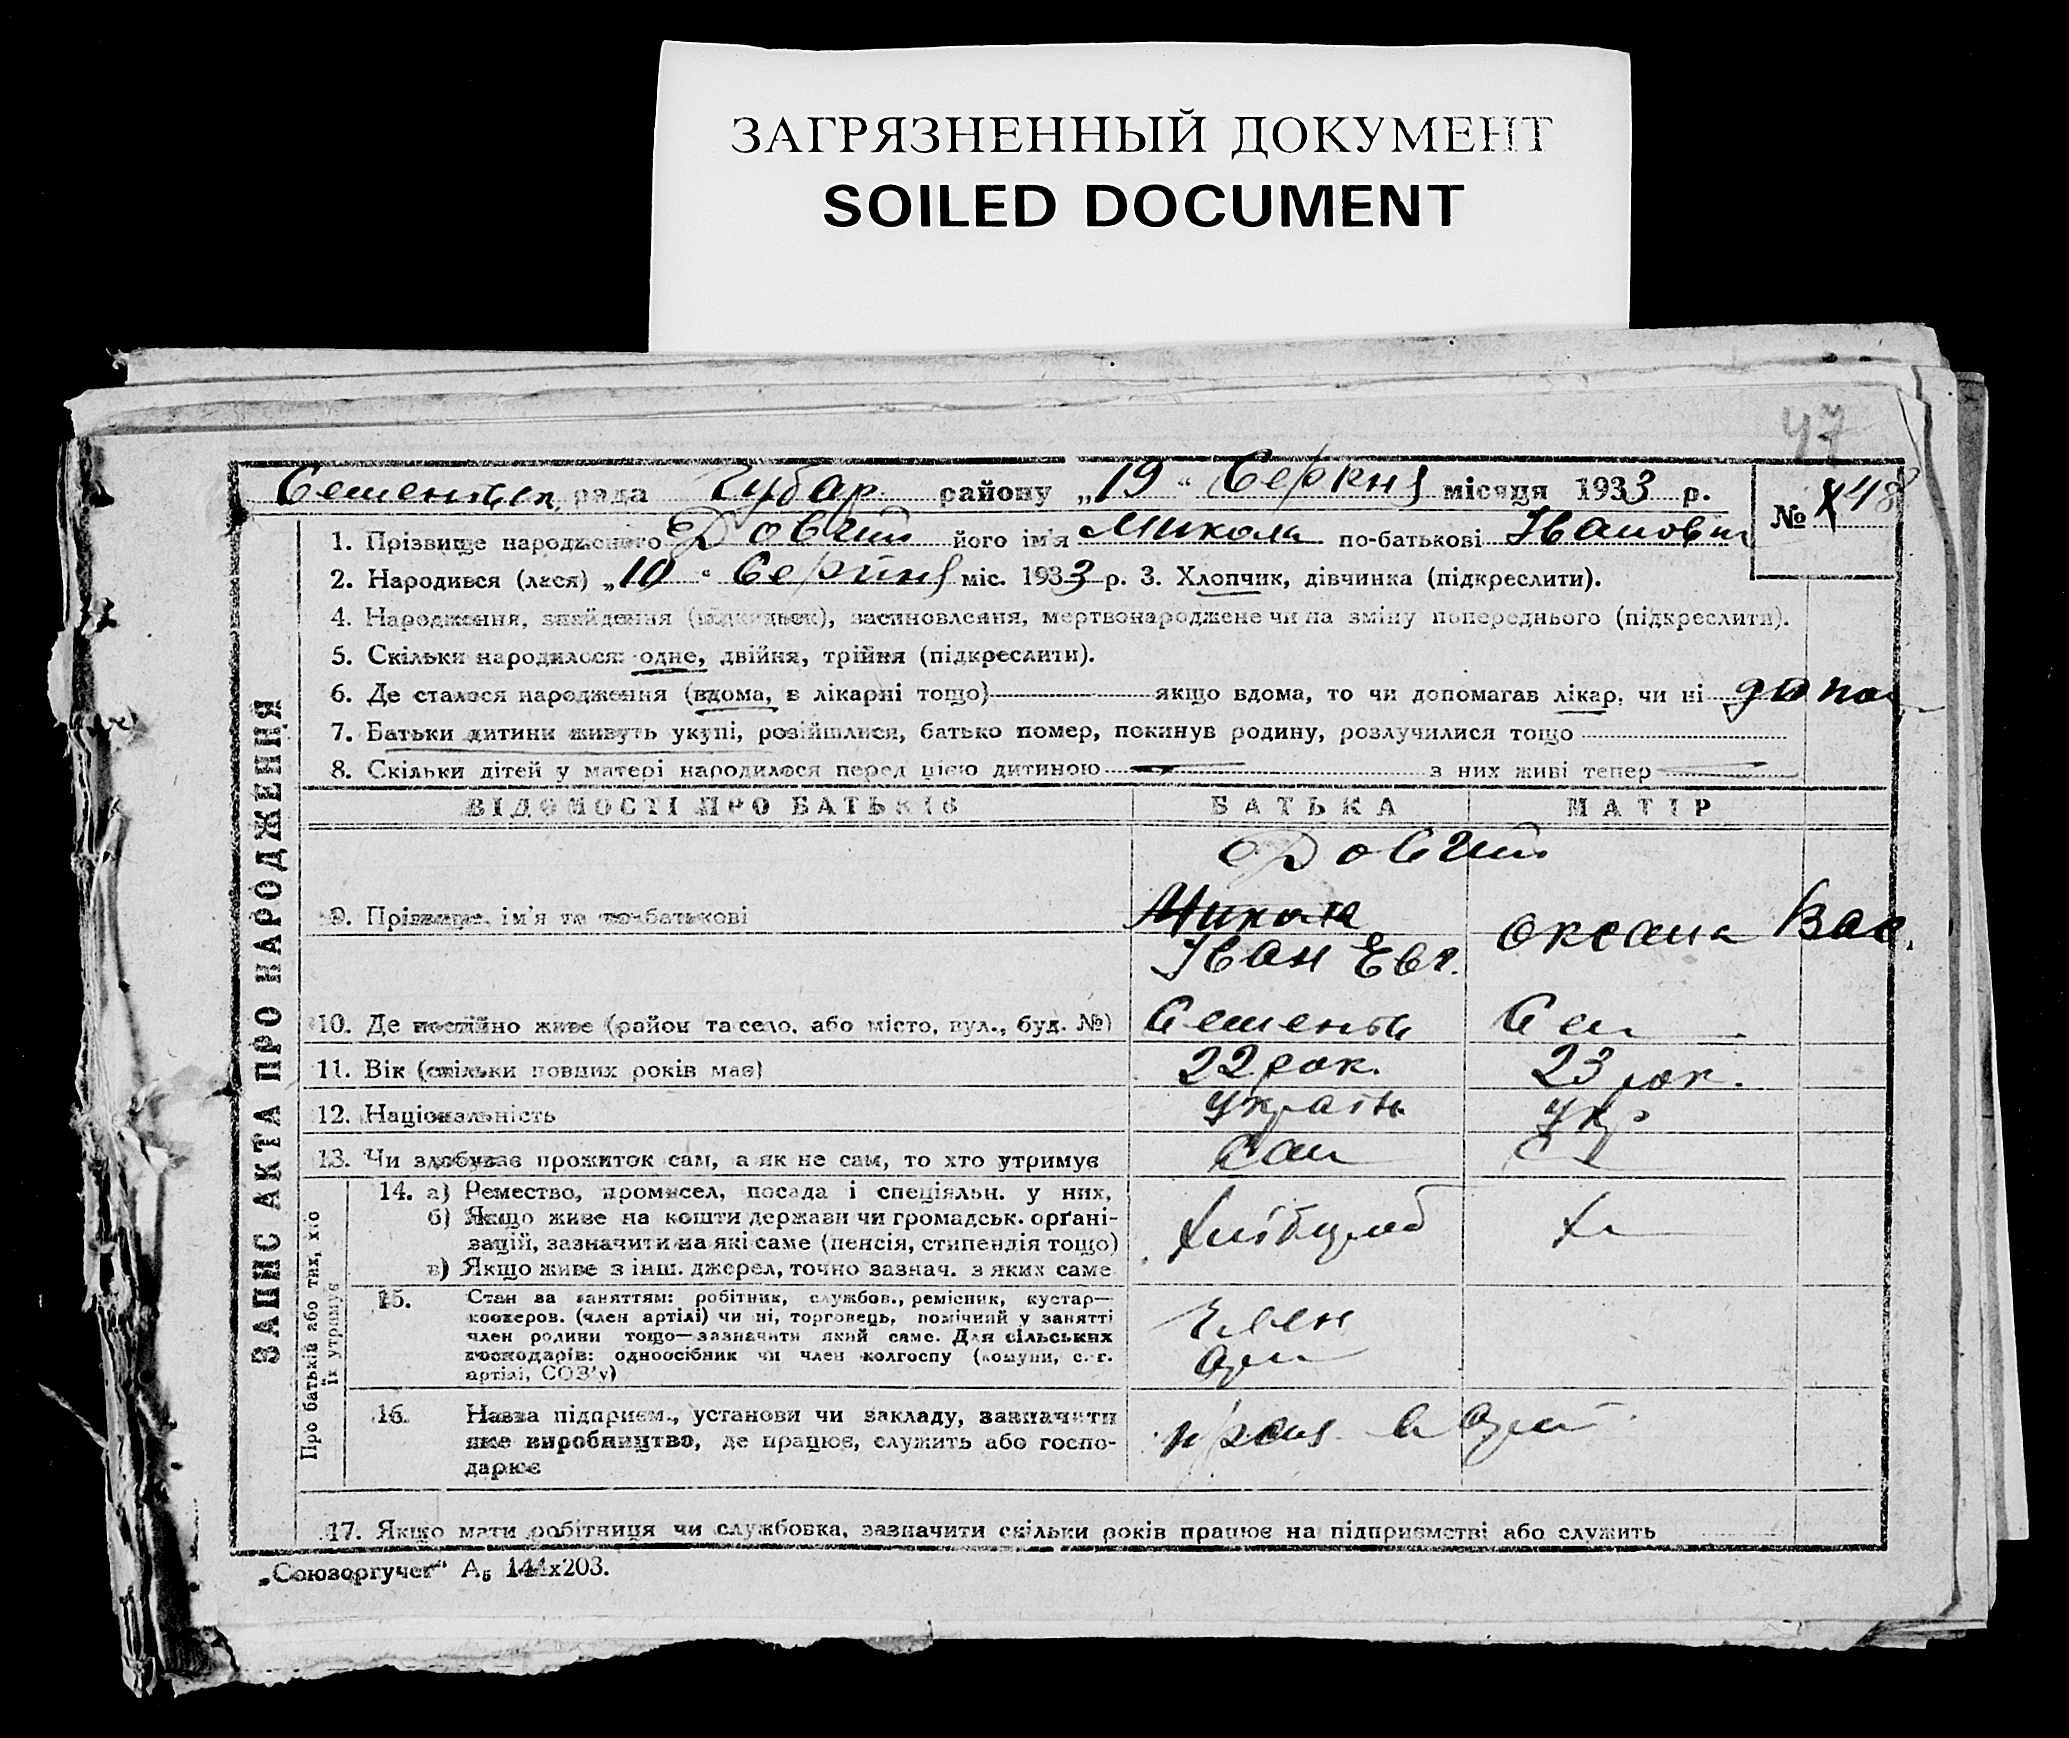 ЗАГРЯЗНЕННЫЙ ДОКУМЕНТ
SOILED DOCUMENT
47
Сементск. рада Чубар. району „19“ Серпня місяця 1933 р.
№ 48
1. Прізвище народженого Довгий його ім'я Микола по-батькові Іванович
2. Народився (лася) „10“ Серпня міс. 1933 р. 3. Хлопчик, дівчинка (підкреслити).
4. Народження, знайдення (підкидьок), засиновлення, мертвонароджене чи на зміну попереднього (підкреслити).
5. Скільки народилося: одне, двійня, трійня (підкреслити).
6. Де сталося народження (вдома, в лікарні тощо) якщо вдома, то чи допомагав лікар, чи ні
7. Батьки дитини живуть укупі, розійшлися, батько помер, покинув родину, розлучилися тощо
8. Скільки дітей у матері народилося перед цією дитиною — з них живі тепер —
ВІДОМОСТІ ПРО БАТЬКІВ БАТЬКА МАТІР
ЗАПИС АКТА ПРО НАРОДЖЕННЯ
Довгий
9. Прізвище, ім'я та по-батькові Микола
Іван Евг. Оксана Вас.
10. Де постійно живе (район та село, або місто, вул., буд. №) Сем
11. Вік (скільки повних років має) 22 рок. 23 рок.
12. Національність Україн Укр
13. Чи здобуває прожиток сам, а як не сам, то хто утримує Сам
Про батьків або тих, хто
їх утримує
14. а) Ремество, промисел, посада і спеціяльн. у них,
б) Якщо живе на кошти держави чи громадськ. орґані-
зацій, зазначити на які саме (пенсія, стипендія тощо) Хлібороб Х
в) Якщо живе з інш. джерел, точно зазнач. з яких саме
15. Стан за заняттям: робітник, службов., ремісник, кустар—
коопєров. (член артілі) чи ні, торговець, помічний у занятті
член родини тощо—зазначити який саме. Для сільських
господарів: одноосібник чи член колгоспу (комуни, с.-г.
артілі, СОЗ'у)
Член
арт
16. Назва підприєм., установи чи закладу, зазначити
яке виробництво, де працює, служить або госпо-
дарює
17. Якщо мати робітниця чи службовка, зазначити скільки років працює на підприємстві або служить
„Союзоргучет“ А₅ 144х203.